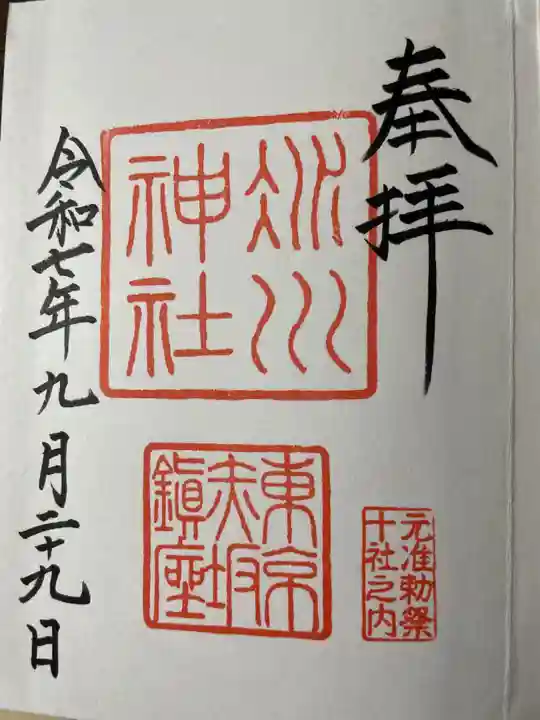 奉拝
冰川
神社
東京
赤坂
鎭座
元准勅祭
十社之内
令和七年九月二十九日